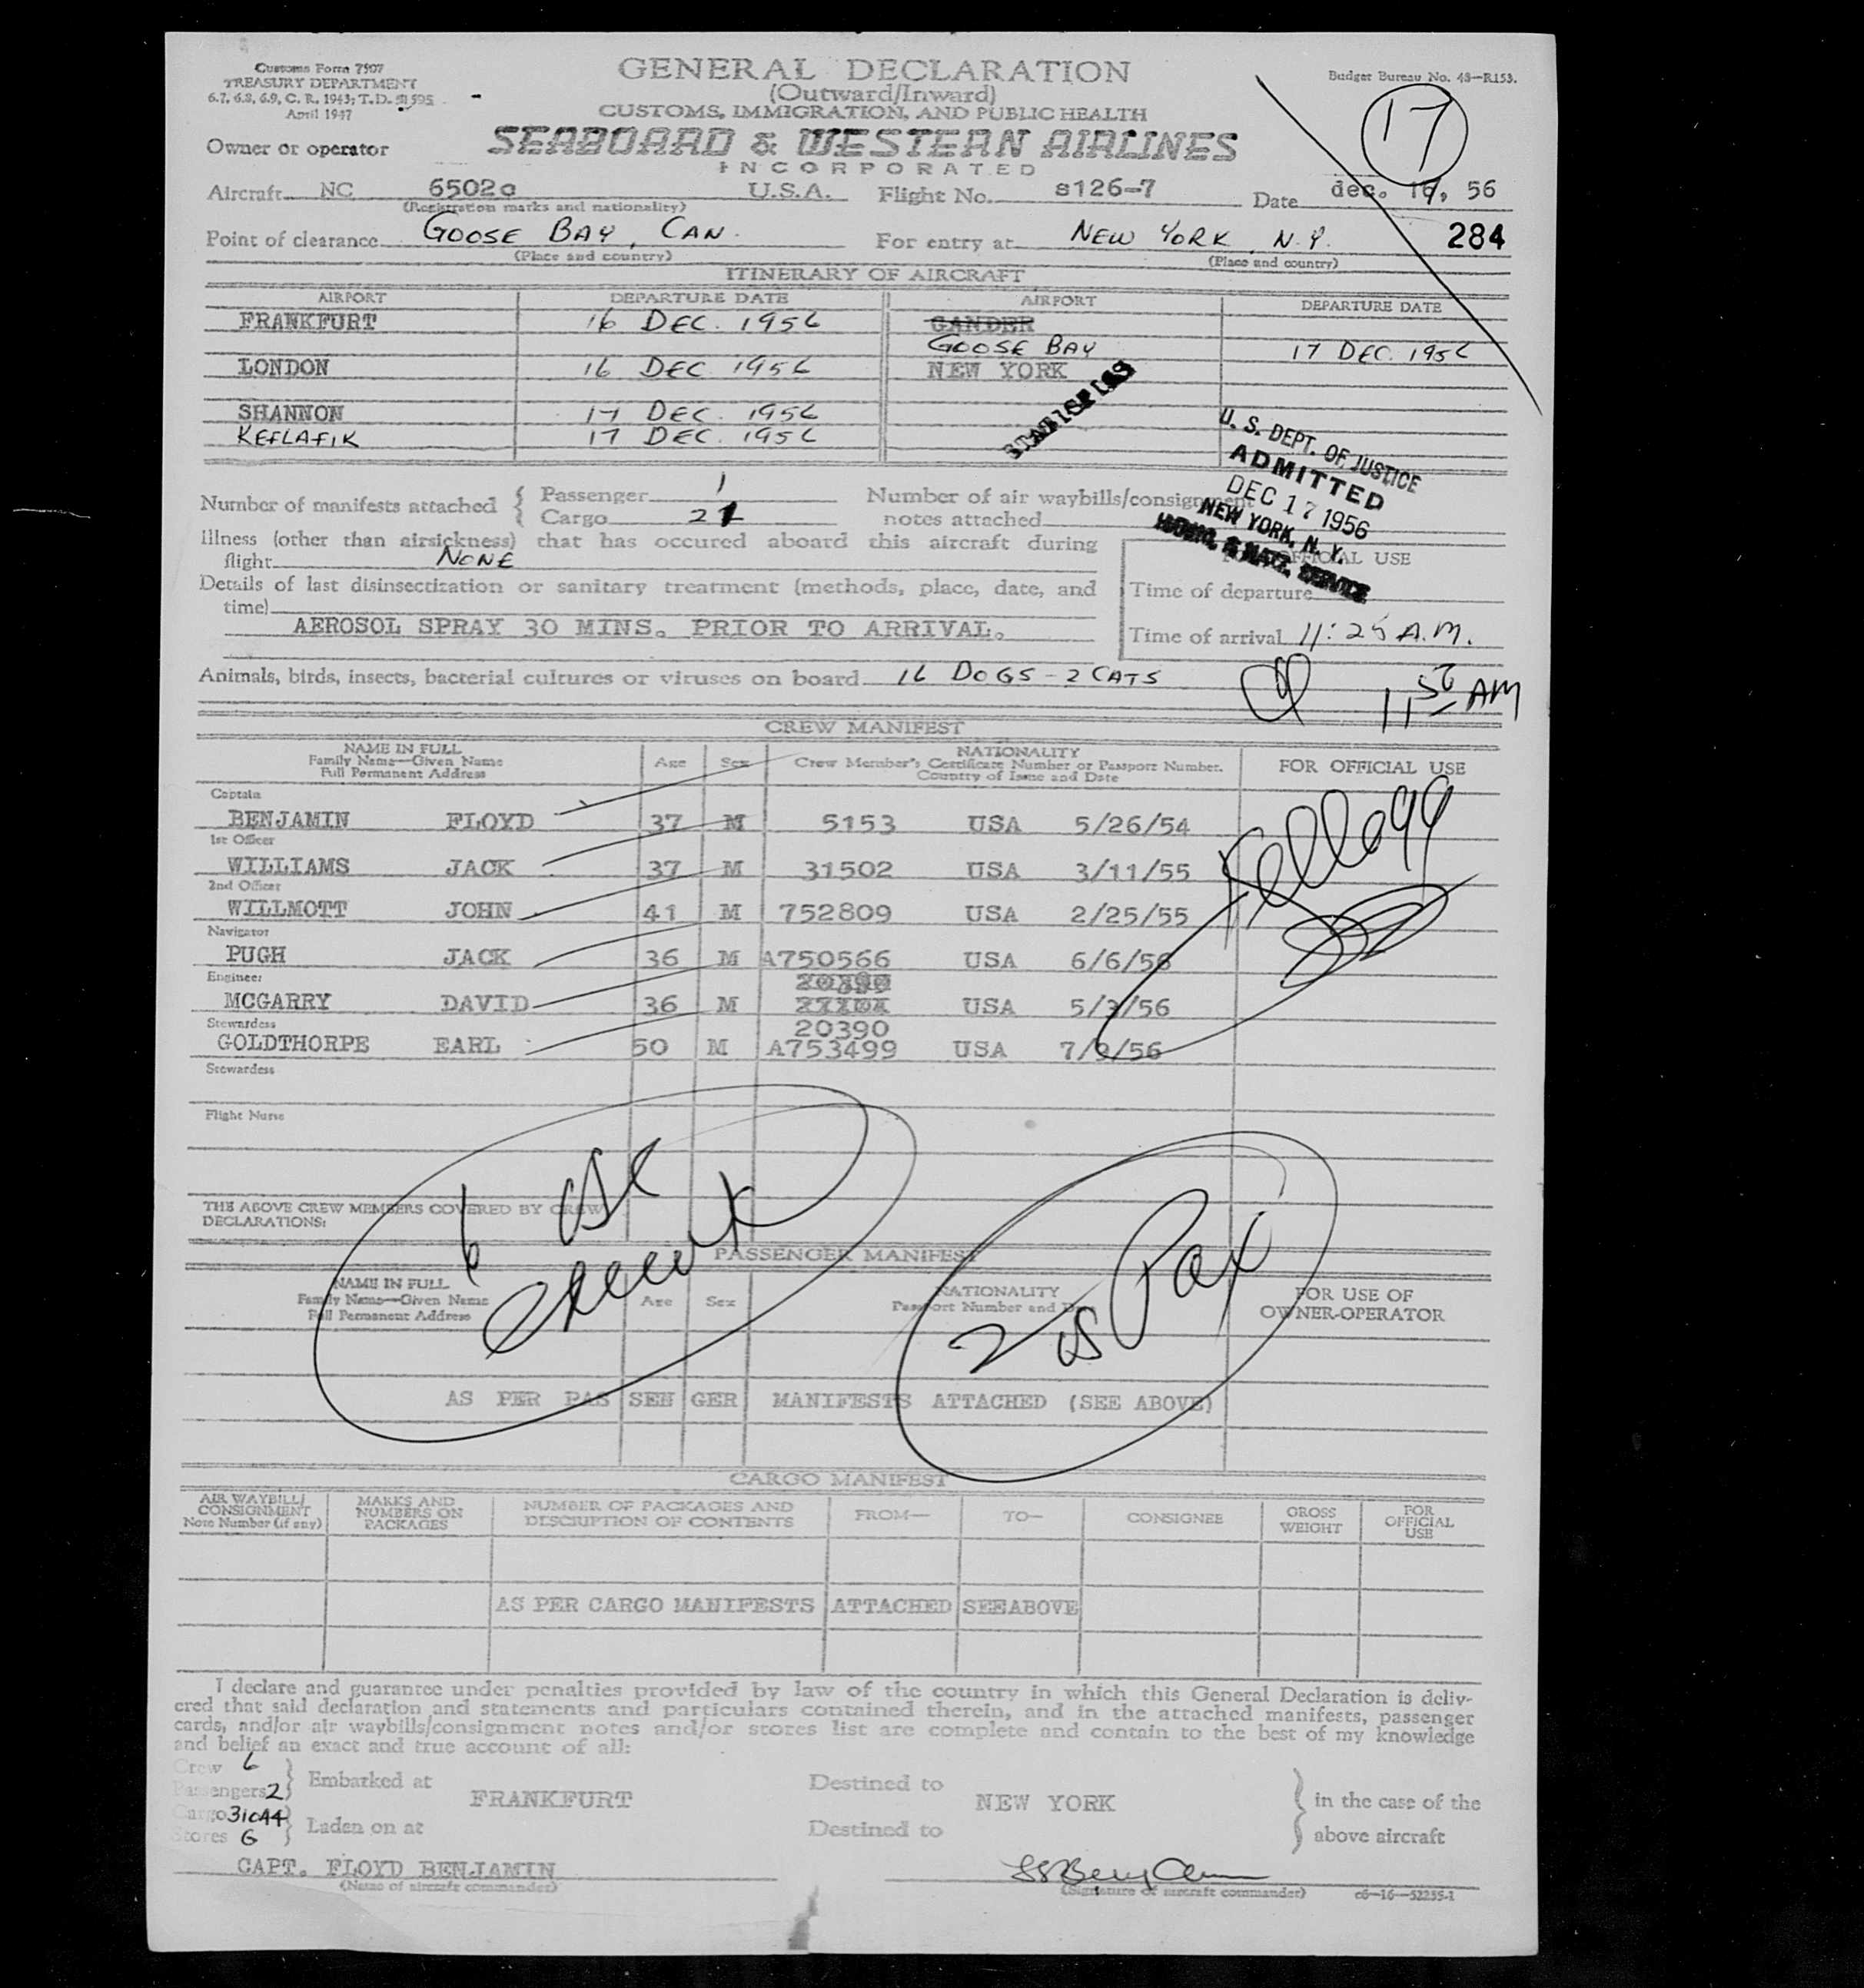 Customs Form 7507
TREASURY DEPARTMENT
6.7, 6.8, 6.9, C. R. 1943; T. D. 51595
April 1947
GENERAL DECLARATION
(Outward/Inward)
CUSTOMS, IMMIGRATION, AND PUBLIC HEALTH
Budget Bureau No. 48—R153.
17
Owner or operator SEABOARD & WESTERN AIRLINES
INCORPORATED
Aircraft NC 6502c U.S.A. Flight No. s126-7 Date dec. 16, 56
(Registration marks and nationality)
Point of clearance GOOSE BAY, CAN. For entry at NEW YORK, N.Y. 284
(Place and country) (Place and country)
ITINERARY OF AIRCRAFT
AIRPORT DEPARTURE DATE AIRPORT DEPARTURE DATE
FRANKFURT 16 DEC. 1956 GANDER
GOOSE BAY 17 DEC. 1956
LONDON 16 DEC 1956 NEW YORK
SHANNON 17 DEC. 1956
KEFLAFIK 17 DEC. 1956
U. S. DEPT. OF JUSTICE
ADMITTED
DEC 17 1956
NEW YORK, N. Y.
IMMIG. & NATZ. SERVICE
Number of manifests attached { Passenger 1
Cargo 2
Number of air waybills/consignment
notes attached
Illness (other than airsickness) that has occured aboard this aircraft during
flight NONE
OFFICIAL USE
Details of last disinsectization or sanitary treatment (methods, place, date, and
time)
AEROSOL SPRAY 30 MINS. PRIOR TO ARRIVAL.
Time of departure
Time of arrival 11:25 A.M.
Animals, birds, insects, bacterial cultures or viruses on board 16 DOGS - 2 CATS
11 50 AM
CREW MANIFEST
NAME IN FULL
Family Name—Given Name
Full Permanent Address
Age Sex
NATIONALITY
Crew Member's Certificate Number or Passport Number.
Country of Issue and Date
FOR OFFICIAL USE
Captain
BENJAMIN FLOYD 37 M 5153 USA 5/26/54
1st Officer
WILLIAMS JACK 37 M 31502 USA 3/11/55
2nd Officer
WILLMOTT JOHN 41 M 752809 USA 2/25/55
Navigator
PUGH JACK 36 M A750566 USA 6/6/56
Engineer
MCGARRY DAVID 36 M USA 5/3/56
20390
Stewardess
GOLDTHORPE EARL 50 M A753499 USA 7/9/56
Kellogg
Stewardess
Flight Nurse
THE ABOVE CREW MEMBERS COVERED BY CREW
DECLARATIONS:
6 USC
2 US Pax
PASSENGER MANIFEST
NAME IN FULL
Family Name—Given Name
Full Permanent Address
Age Sex
NATIONALITY
Passport Number and
FOR USE OF
OWNER-OPERATOR
AS PER PAS SEN GER MANIFESTS ATTACHED (SEE ABOVE)
CARGO MANIFEST
AIR WAYBILL/
CONSIGNMENT
Note Number (if any)
MARKS AND
NUMBERS ON
PACKAGES
NUMBER OF PACKAGES AND
DESCRIPTION OF CONTENTS
FROM—
TO—
CONSIGNEE
GROSS
WEIGHT
FOR
OFFICIAL
USE
AS PER CARGO MANIFESTS ATTACHED SEE ABOVE
I declare and guarantee under penalties provided by law of the country in which this General Declaration is deliv-
ered that said declaration and statements and particulars contained therein, and in the attached manifests, passenger
cards, and/or air waybills/consignment notes and/or stores list are complete and contain to the best of my knowledge
and belief an exact and true account of all:
Crew 6
Passengers 2
Embarked at FRANKFURT Destined to NEW YORK in the case of the
Cargo
Stores
Laden on at Destined to above aircraft
CAPT. FLOYD BENJAMIN
(Name of aircraft commander) (Signature of aircraft commander) c6—16—52255-1